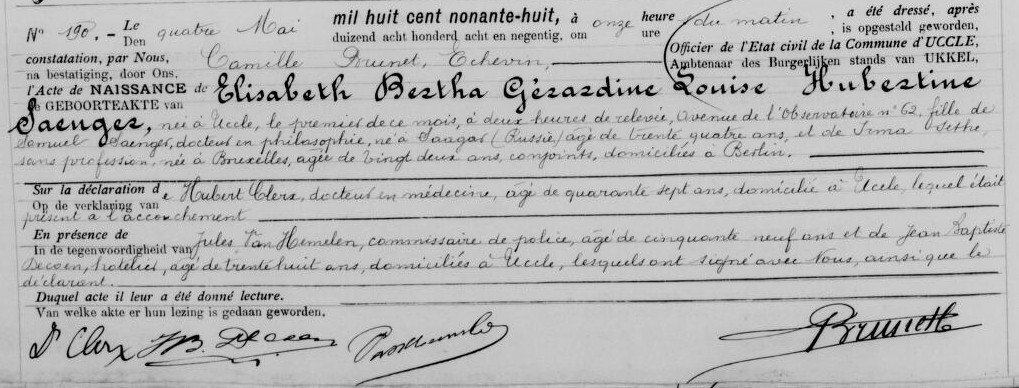 N° 190. - Le quatre Mai mil huit cent nonante-huit, à onze heure du matin, a été dressé, après
Den duizend acht honderd acht en negentig, om ure , is opgesteld geworden,
constatation, par Nous, Camille Echevin, Officier de l'Etat civil de la Commune d'UCCLE,
na bestatiging, door Ons, Ambtenaar des Burgerlijken stands van UKKEL,
l'Acte de NAISSANCE de Elisabeth Bertha Gérardine Louise Hubertine
de GEBOORTEAKTE van
Saenger, née à Uccle, le premier de ce mois, à deux heures de relevée, avenue de l'Observatoire n° 62, fille de
Samuel Saenger, docteur en philosophie, né à Saagar (Russie) âgé de trente quatre ans, et de Irma Sethe,
sans profession, née à Bruxelles, agée de vingt deux ans, conjoints, domiciliés à Berlin.
Sur la déclaration de Hubert Clerx, docteur en médecine, âgé de quarante sept ans, domicilié à Uccle, lequel était
Op de verklaring van
présent à l'accouchement
En présence de Jules Van Hemelen, commissaire de police, âgé de cinquante neuf ans et de Jean Baptiste
In de tegenwoordigheid van
Decoen, hôtelier, agé de trente huit ans, domiciliés à Uccle, lesquels ont signé avec Nous, ainsi que le
déclarant.
Duquel acte il leur a été donné lecture.
Van welke akte er hun lezing is gedaan geworden.
Dr Clerx JB. Decoen